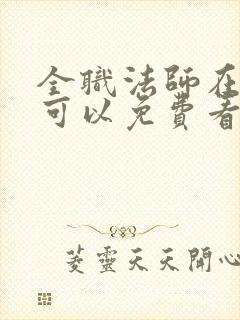 全職法師在
可以免費看
菱靈天天開心